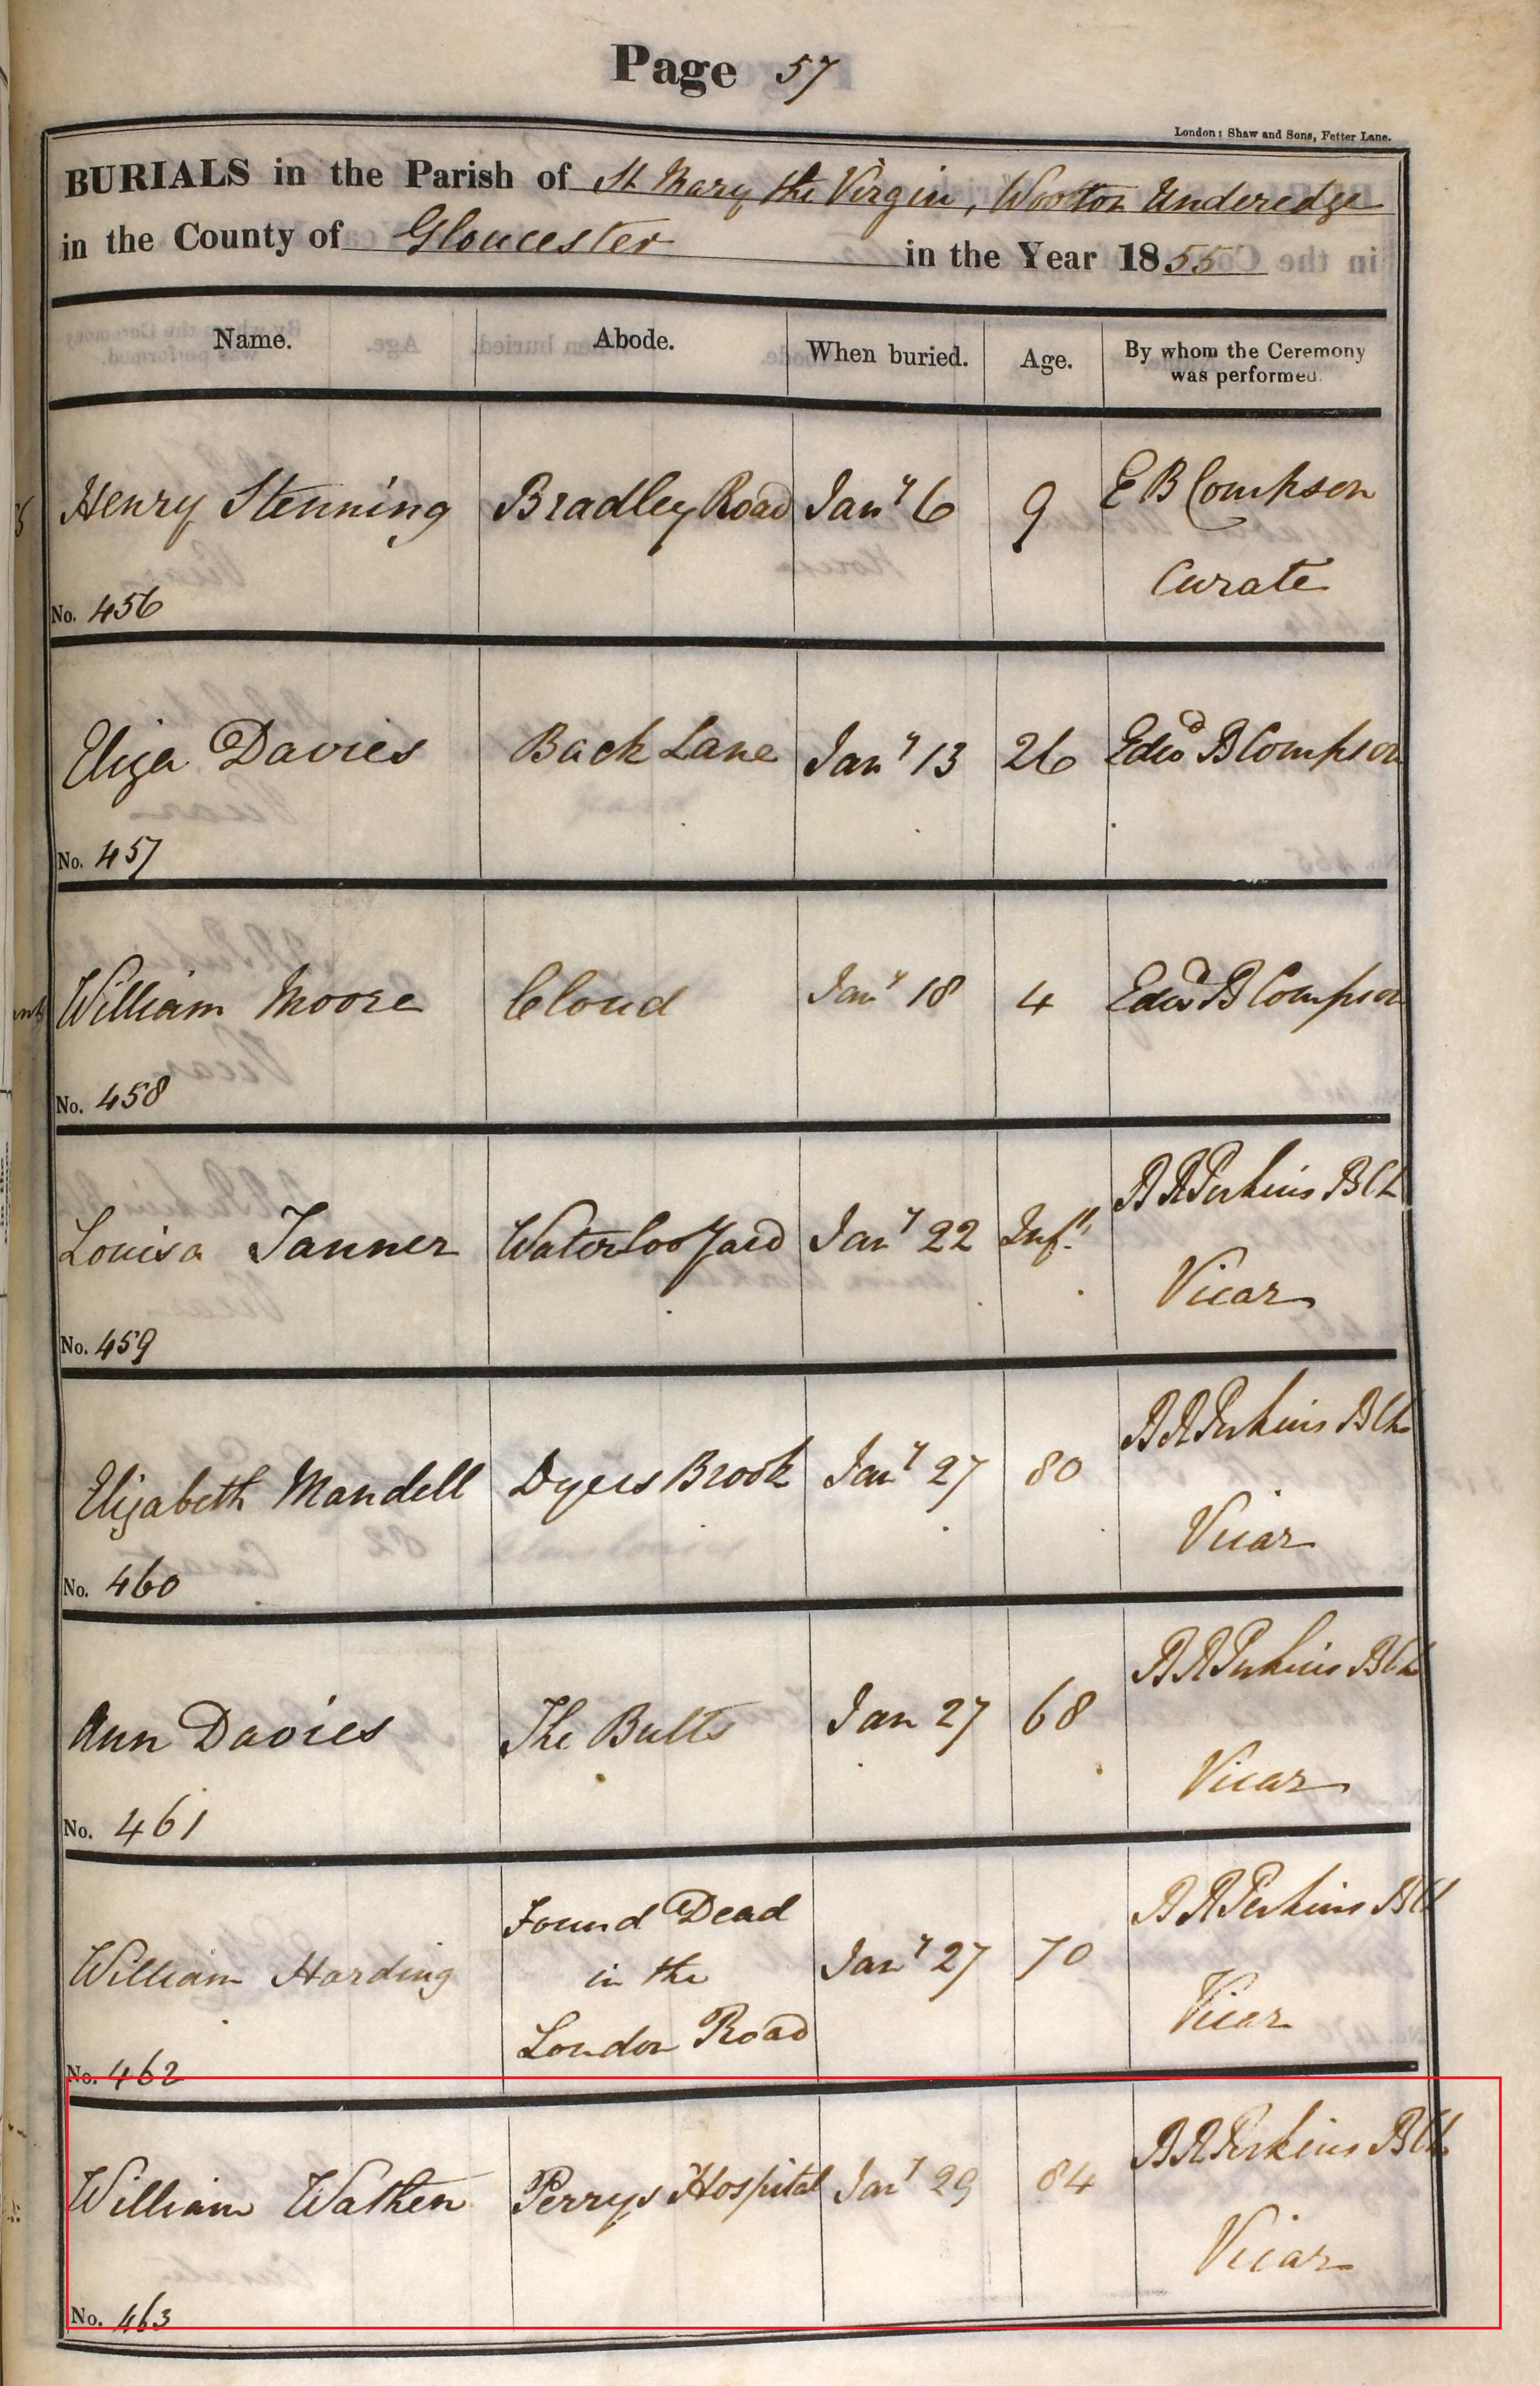 Page 57
London: Shaw and Sons, Fetter Lane.
BURIALS in the Parish of St Mary the Virgin, Wootton Underedge
in the County of Gloucester in the Year 1855
Name. Abode. When buried. Age. By whom the Ceremony was performed.
Henry Stenning Bradley Road Jany 6 9 E B Compson
Curate
No. 456
Eliza Davies Back Lane Jany 13 26 Edwd B Compson
No. 457
William Moore Cloud Jany 18 4 Edwd B Compson
No. 458
B R Perkins BCL
Louisa Tanner Waterloo Yard Jany 22 Inft.
Vicar
No. 459
B R Perkins BCL
Elizabeth Mandell Dyers Brook Jany 27 80
Vicar
No. 460
B R Perkins BCL
Ann Davies The Butts Jan 27 68
Vicar
No. 461
Found Dead B R Perkins BCL
William Harding in the Jany 27 70
London Road Vicar
No. 462
B R Perkins BCL
William Wathen Perrys Hospital Jany 29 84
Vicar
No. 463